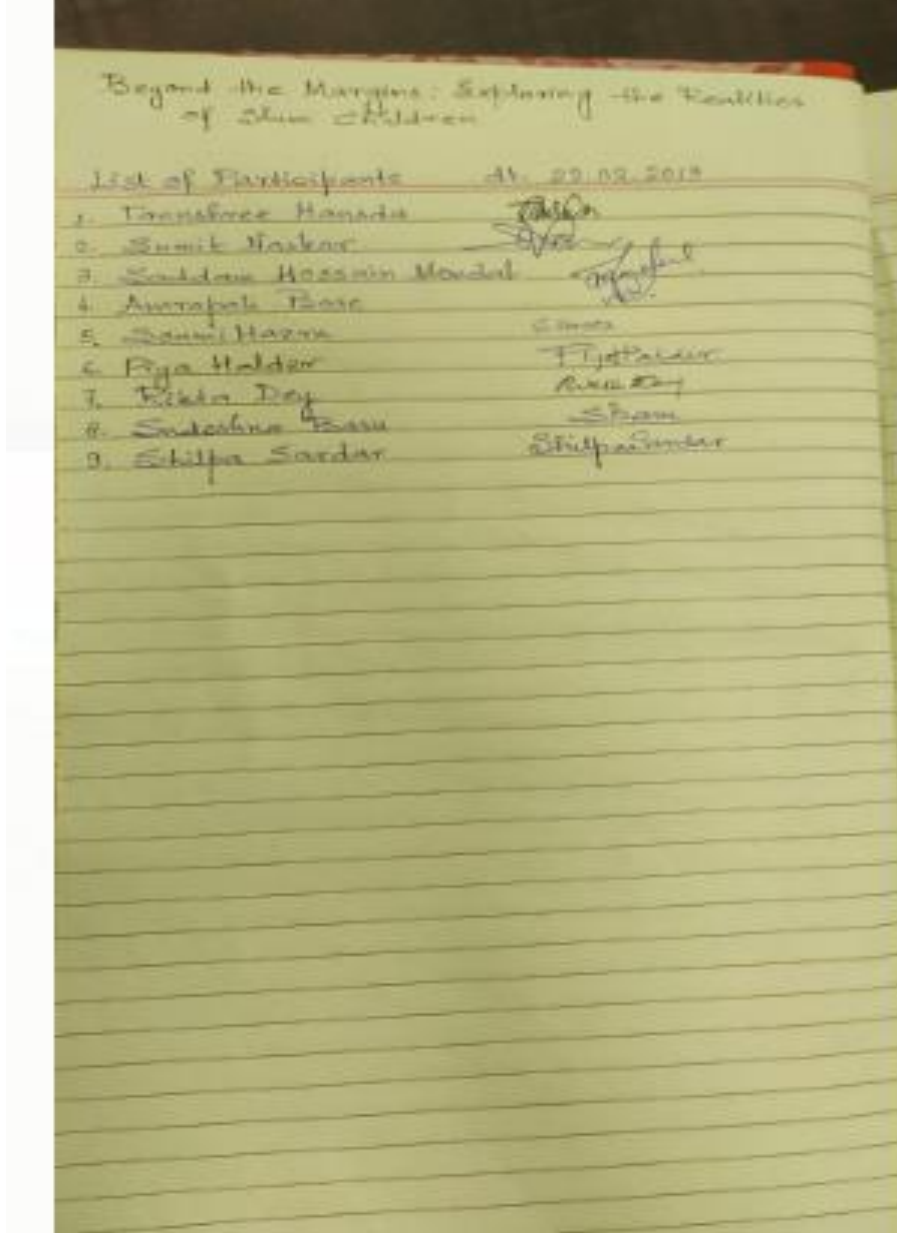 Beyond the Margins: Exploring the Realities
of Slum Children
List of Participants dt. 22.02.2019
1. Tanushree Hansda
2. Sumit Naskar
3. Saddam Hossain Mondal
4. Amrapali Bose
5. Soumi Hazra
6. Piya Halder PiyaHalder
7. Rikta Dey Rikta Dey
8. Sudeshna Basu SBasu
9. Shilpa Sardar Shilpa Sardar